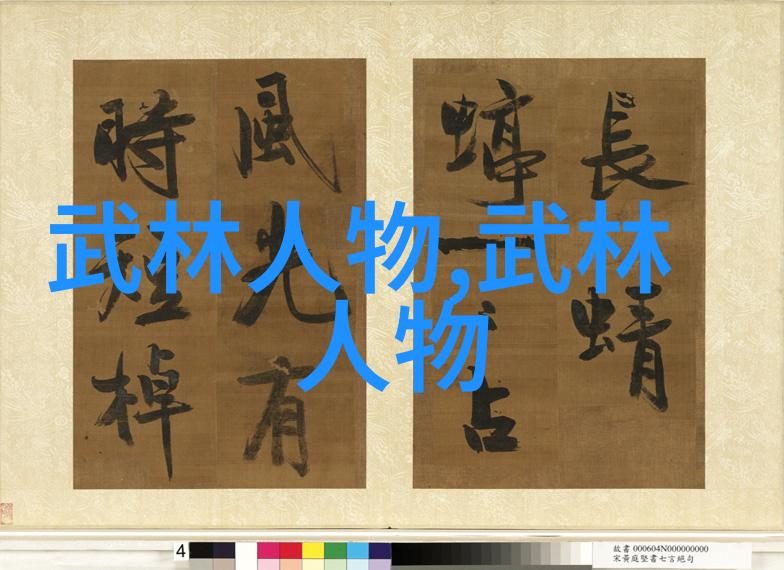 武林人物,武林
人物
長蜻
蝏一
風光有
時棹
4
故書 000604N000000000
宋黃庭堅書七言絕句